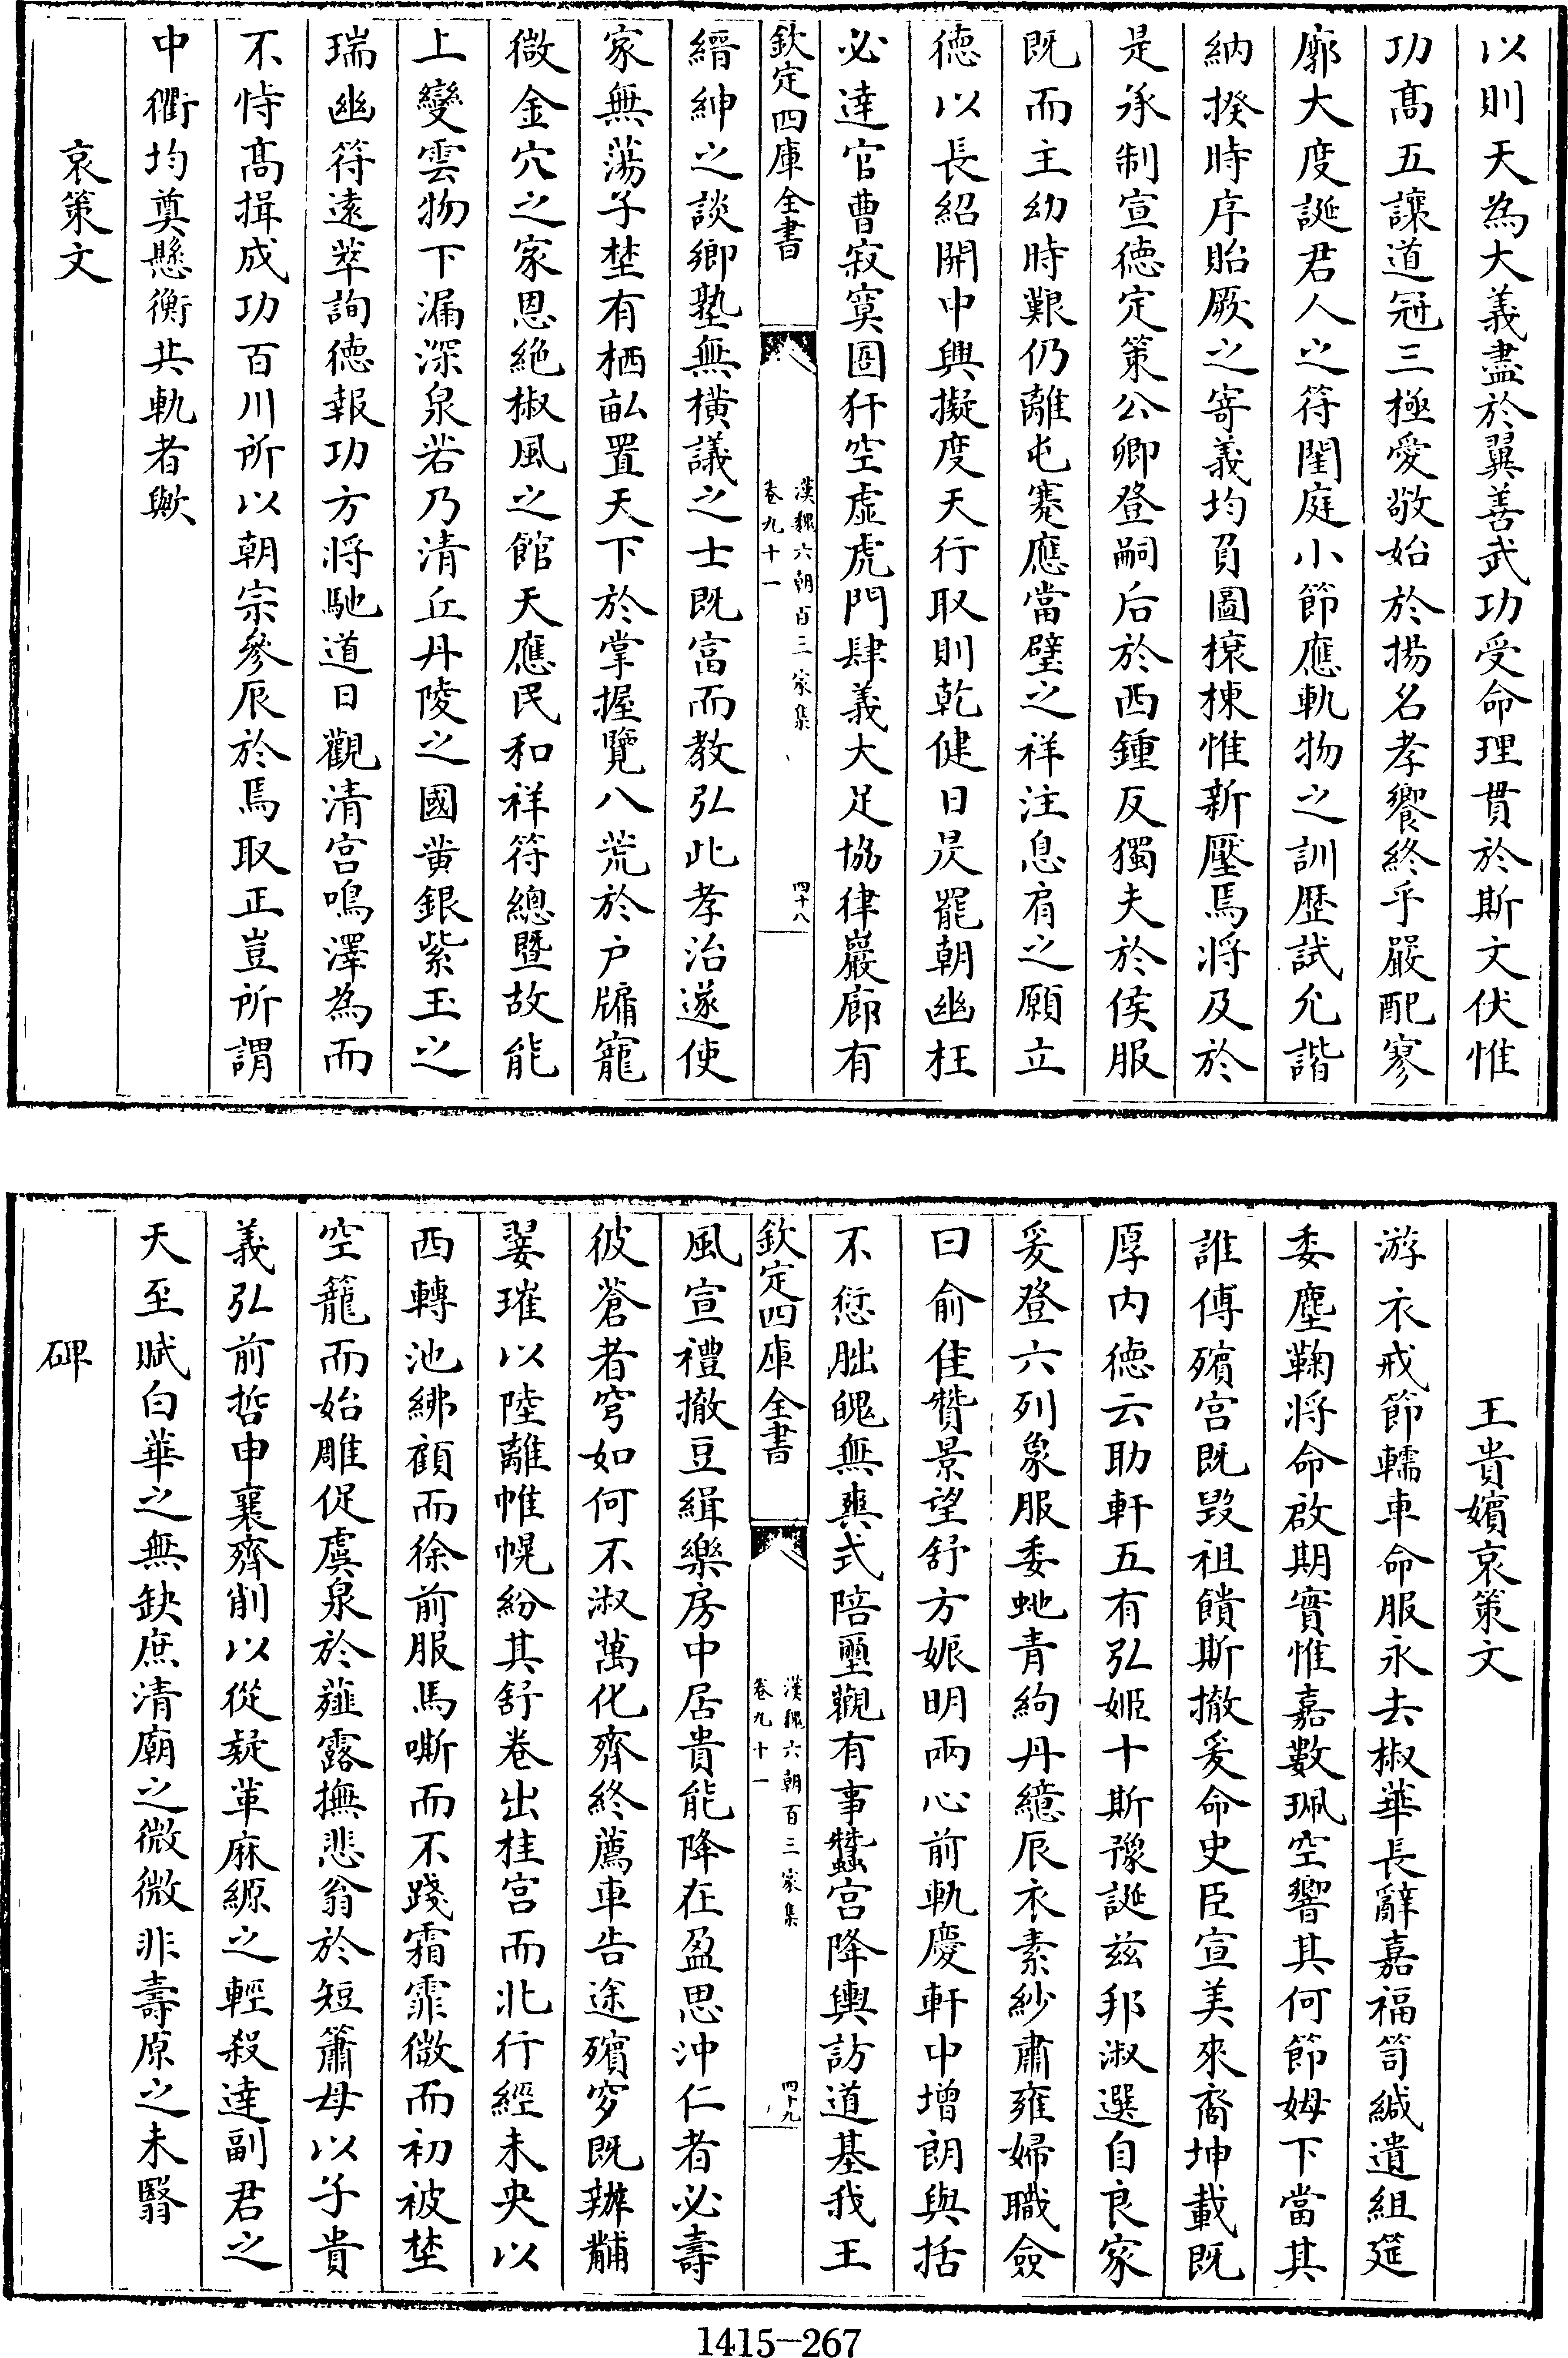 以則天為大義盡於翼善武功受命理貫於斯文伏惟
功髙五讓道冠三極愛敬始於揚名孝饗終乎嚴配寥
廓大度誕君人之符閨庭小節應軌物之訓歴試允諧
納揆時序貽厥之寄義均負圖榱棟惟新壓焉将及於
是承制宣徳定策公卿登嗣后於西鍾反獨夫於侯服
既而主幼時艱仍離屯蹇應當璧之祥注息肩之願立
徳以長紹開中興擬度天行取則乾健日昃罷朝幽枉
必達官曹寂寞圄犴空虚虎門肆義大足協律巖廊有
欽定四庫全書
漢魏六朝百三家集
卷九十一
四十八
縉紳之談鄉塾無横議之士既富而教弘此孝治遂使
家無蕩子埜有栖畝置天下於掌握覽八荒於户牖寵
微金穴之家恩絶椒風之館天應民和祥符總曁故能
上變雲物下漏深泉若乃清丘丹陵之國黄銀紫玉之
瑞幽符逺萃詢徳報功方将馳道日觀清宫鳴澤為而
不恃髙揖成功百川所以朝宗參辰於焉取正豈所謂
中衢均奠懸衡共軌者歟
哀策文
王貴嬪哀策文
游衣戒節轜車命服永去椒華長辭嘉福笥緘遺組筵
委塵鞠将命啟期實惟嘉數珮空響其何節姆下當其
誰傅殯宫既毁祖饋斯撤爰命史臣宣美來裔坤載既
厚内徳云助軒五有弘姬十斯豫誕兹邦淑選自良家
爰登六列象服委虵青絇丹繶辰衣素紗肅雍婦職僉
曰俞佳贊景望舒方娠明兩心前軌慶軒中增朗與括
不愆朏魄無爽式陪璽觀有事蠶宫降輿訪道基我王
欽定四庫全書
漢魏六朝百三家集
卷九十一
四十九
風宣禮撤豆緝樂房中居貴能降在盈思冲仁者必壽
彼蒼者穹如何不淑萬化齊終薦車告途殯穸既辦黼
翣璀以陸離帷幌紛其舒卷出桂宫而北行經未央以
西轉池紼顧而徐前服馬嘶而不踐霜霏微而初被埜
空籠而始雕促虞泉於薤露撫悲翁於短簫母以子貴
義弘前哲申襄齊削以從疑革麻縓之輕殺達副君之
天至賦白華之無缺庶清廟之微微非壽原之未翳
碑
1415-267